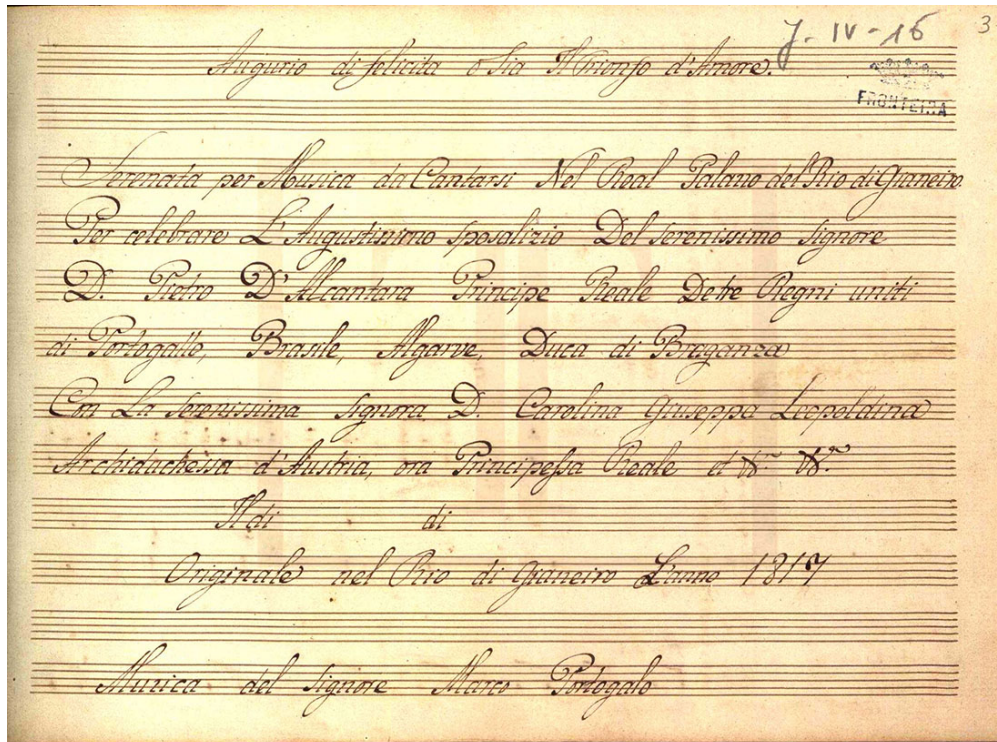 J-IV-16
3
Augurio di felicita o Sia Il Trionfo d'Amore.
FRONTEIRA
Serenata per Musica da Cantarsi Nel Real Palazzo del Rio di Gianeiro.
Per celebrare L'Augustissimo sposalizio Del serenissimo signore
D. Pietro D'Alcantara Principe Reale De tre Regni uniti
di Portogallo, Brasile, Algarve, Duca di Braganza
Con La serenissima signora D. Carolina Giuseppa Leopoldina
Archiduchessa d'Austria, ora Principessa Reale et
Il di di
Originale nel Rio di Gianeiro L'anno 1817
Musica del signore Marco Portogalo